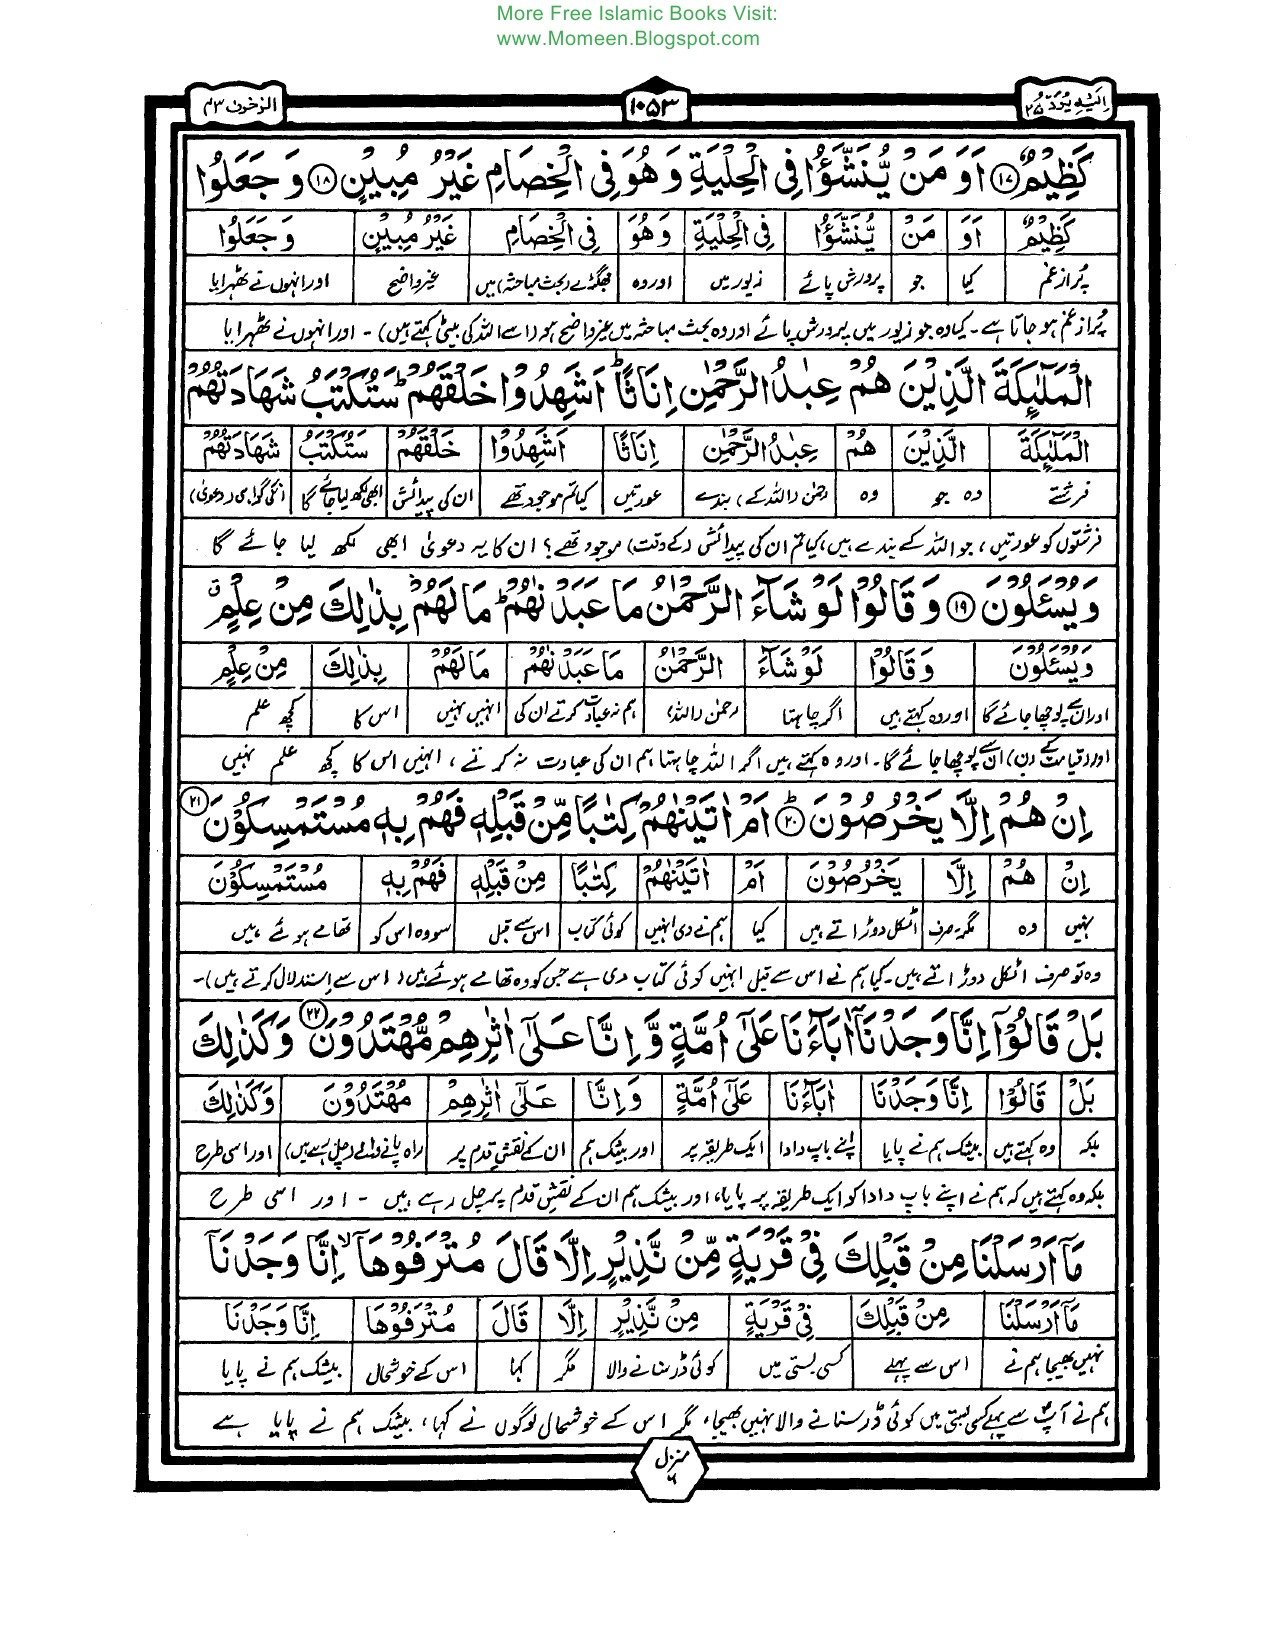 More Free Islamic Books Visit:
www.Momeen.Blogspot.com
اِلَیْہِ یُرَدُّ ۲۵
۱۰۵۳
الزخرف ۴۳
كَظِيْمٌ ۱۷ اَوَ مَنْ يُّنَشَّؤُا فِي الْحِلْيَةِ وَ هُوَ فِي الْخِصَامِ غَيْرُ مُبِيْنٍ ۱۸ وَ جَعَلُوا
كَظِيْمٌ اَوَ مَنْ يُّنَشَّؤُا فِي الْحِلْيَةِ وَ هُوَ فِي الْخِصَامِ غَيْرُ مُبِيْنٍ وَ جَعَلُوا
پُر از غم کیا جو پرورش پائے زیور میں اور وہ جھگڑے (بحث مباحثہ) میں غیر واضح اور انہوں نے ٹھہرایا
پُر از غم ہو جاتا ہے۔ کیا وہ جو زیور میں پرورش پائے اور وہ بحث مباحثہ میں غیر واضح ہو (اسے اللہ کی بیٹی کہتے ہیں)۔ اور انہوں نے ٹھہرایا
الْمَلٰٓئِكَةَ الَّذِيْنَ هُمْ عِبٰدُ الرَّحْمٰنِ اِنَاثًا ؕ اَشَهِدُوْا خَلْقَهُمْ ؕ سَتُكْتَبُ شَهَادَتُهُمْ
الْمَلٰٓئِكَةَ الَّذِيْنَ هُمْ عِبٰدُ الرَّحْمٰنِ اِنَاثًا اَشَهِدُوْا خَلْقَهُمْ سَتُكْتَبُ شَهَادَتُهُمْ
فرشتے وہ جو وہ رحمٰن (اللہ کے) بندے عورتیں کیا تم موجود تھے ان کی پیدائش ابھی لکھ لیا جائے گا انکی گواہی (دعویٰ)
فرشتوں کو عورتیں، جو اللہ کے بندے ہیں، کیا تم ان کی پیدائش (کے وقت) موجود تھے؟ ان کا یہ دعویٰ ابھی لکھ لیا جائے گا
وَيُسْئَلُوْنَ ۱۹ وَ قَالُوْا لَوْ شَآءَ الرَّحْمٰنُ مَا عَبَدْنٰهُمْ ؕ مَا لَهُمْ بِذٰلِكَ مِنْ عِلْمٍ ۗ
وَيُسْئَلُوْنَ وَ قَالُوْا لَوْ شَآءَ الرَّحْمٰنُ مَا عَبَدْنٰهُمْ مَا لَهُمْ بِذٰلِكَ مِنْ عِلْمٍ
اور ان سے پوچھا جائے گا اور وہ کہتے ہیں اگر چاہتا رحمٰن (اللہ) ہم نہ عبادت کرتے ان کی انہیں نہیں اس کا کچھ علم
اور (قیامت کے دن) ان سے پوچھا جائے گا۔ اور وہ کہتے ہیں اگر اللہ چاہتا ہم ان کی عبادت نہ کرتے، انہیں اس کا کچھ علم نہیں
اِنْ هُمْ اِلَّا يَخْرُصُوْنَ ؕ ۲۰ اَمْ اٰتَيْنٰهُمْ كِتٰبًا مِّنْ قَبْلِهٖ فَهُمْ بِهٖ مُسْتَمْسِكُوْنَ ۲۱
اِنْ هُمْ اِلَّا يَخْرُصُوْنَ اَمْ اٰتَيْنٰهُمْ كِتٰبًا مِنْ قَبْلِهٖ فَهُمْ بِهٖ مُسْتَمْسِكُوْنَ
نہیں وہ مگر۔صرف اٹکل دوڑاتے ہیں کیا ہم نے دی انہیں کوئی کتاب اس سے قبل سو وہ اس کو تھامے ہوئے ہیں
وہ تو صرف اٹکل دوڑاتے ہیں۔ کیا ہم نے اس سے قبل انہیں کوئی کتاب دی ہے جس کو وہ تھامے ہوئے ہیں (اس سے استدلال کرتے ہیں)۔
بَلْ قَالُوْٓا اِنَّا وَجَدْنَآ اٰبَآءَنَا عَلٰٓى اُمَّةٍ وَّ اِنَّا عَلٰٓى اٰثٰرِهِمْ مُّهْتَدُوْنَ ۲۲ وَكَذٰلِكَ
بَلْ قَالُوْٓا اِنَّا وَجَدْنَا اٰبَآءَنَا عَلٰٓى اُمَّةٍ وَ اِنَّا عَلٰٓى اٰثٰرِهِمْ مُهْتَدُوْنَ وَكَذٰلِكَ
بلکہ وہ کہتے ہیں بیشک ہم نے پایا اپنے باپ دادا ایک طریقہ پر اور بیشک ہم ان کے نقش قدم پر راہ پانے والے (چل رہے ہیں) اور اسی طرح
بلکہ وہ کہتے ہیں کہ ہم نے اپنے باپ دادا کو ایک طریقہ پر پایا، اور بیشک ہم ان کے نقشِ قدم پر چل رہے ہیں۔ اور اسی طرح
مَآ اَرْسَلْنَا مِنْ قَبْلِكَ فِيْ قَرْيَةٍ مِّنْ نَّذِيْرٍ اِلَّا قَالَ مُتْرَفُوْهَآ ۙ اِنَّا وَجَدْنَآ
مَآ اَرْسَلْنَا مِنْ قَبْلِكَ فِيْ قَرْيَةٍ مِنْ نَّذِيْرٍ اِلَّا قَالَ مُتْرَفُوْهَا اِنَّا وَجَدْنَا
نہیں بھیجا ہم نے اس سے پہلے کسی بستی میں کوئی ڈر سنانے والا مگر کہا اس کے خوشحال بیشک ہم نے پایا
ہم نے آپؐ سے پہلے کسی بستی میں کوئی ڈر سنانے والا نہیں بھیجا، مگر اس کے خوشحال لوگوں نے کہا، بیشک ہم نے پایا ہے
منزل ۶